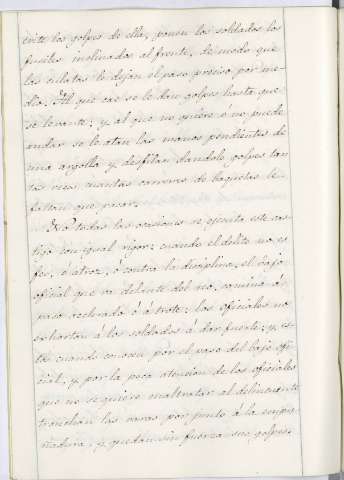 evite los golpes de ella, ponen los soldados los
fusiles inclinados al frente, de modo que
las culatas le dejan el paso preciso por me-
dio. Al que cae se le dan golpes hasta que
se levante; y al que no quiere ó no puede
andar se le atan las manos pendientes de
una argolla y desfilan dandole golpes tan
tas veces cuantas carreras de baquetas le
faltan que pasar.
No todas las ocasiones se ejecuta este cas-
tigo con igual rigor: cuando el delito no es
feo, o atroz, ó contra la disciplina, el bajo
oficial que va delante del reo, camina á
paso acelerado ó á trote: los oficiales no
exhortan á los soldados á dar fuerte; y es-
tos cuando conocen por el paso del bajo ofi
cial, y por la poca atencion de los oficiales
que no se quiere maltratar al delincuente
tronchan las varas por junto á la empu-
ñadura, y quedan sin fuerza sus golpes.